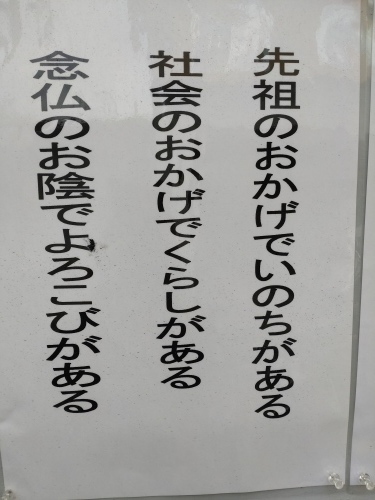 先祖のおかげでいのちがある
社会のおかげでくらしがある
念仏のお陰でよろこびがある